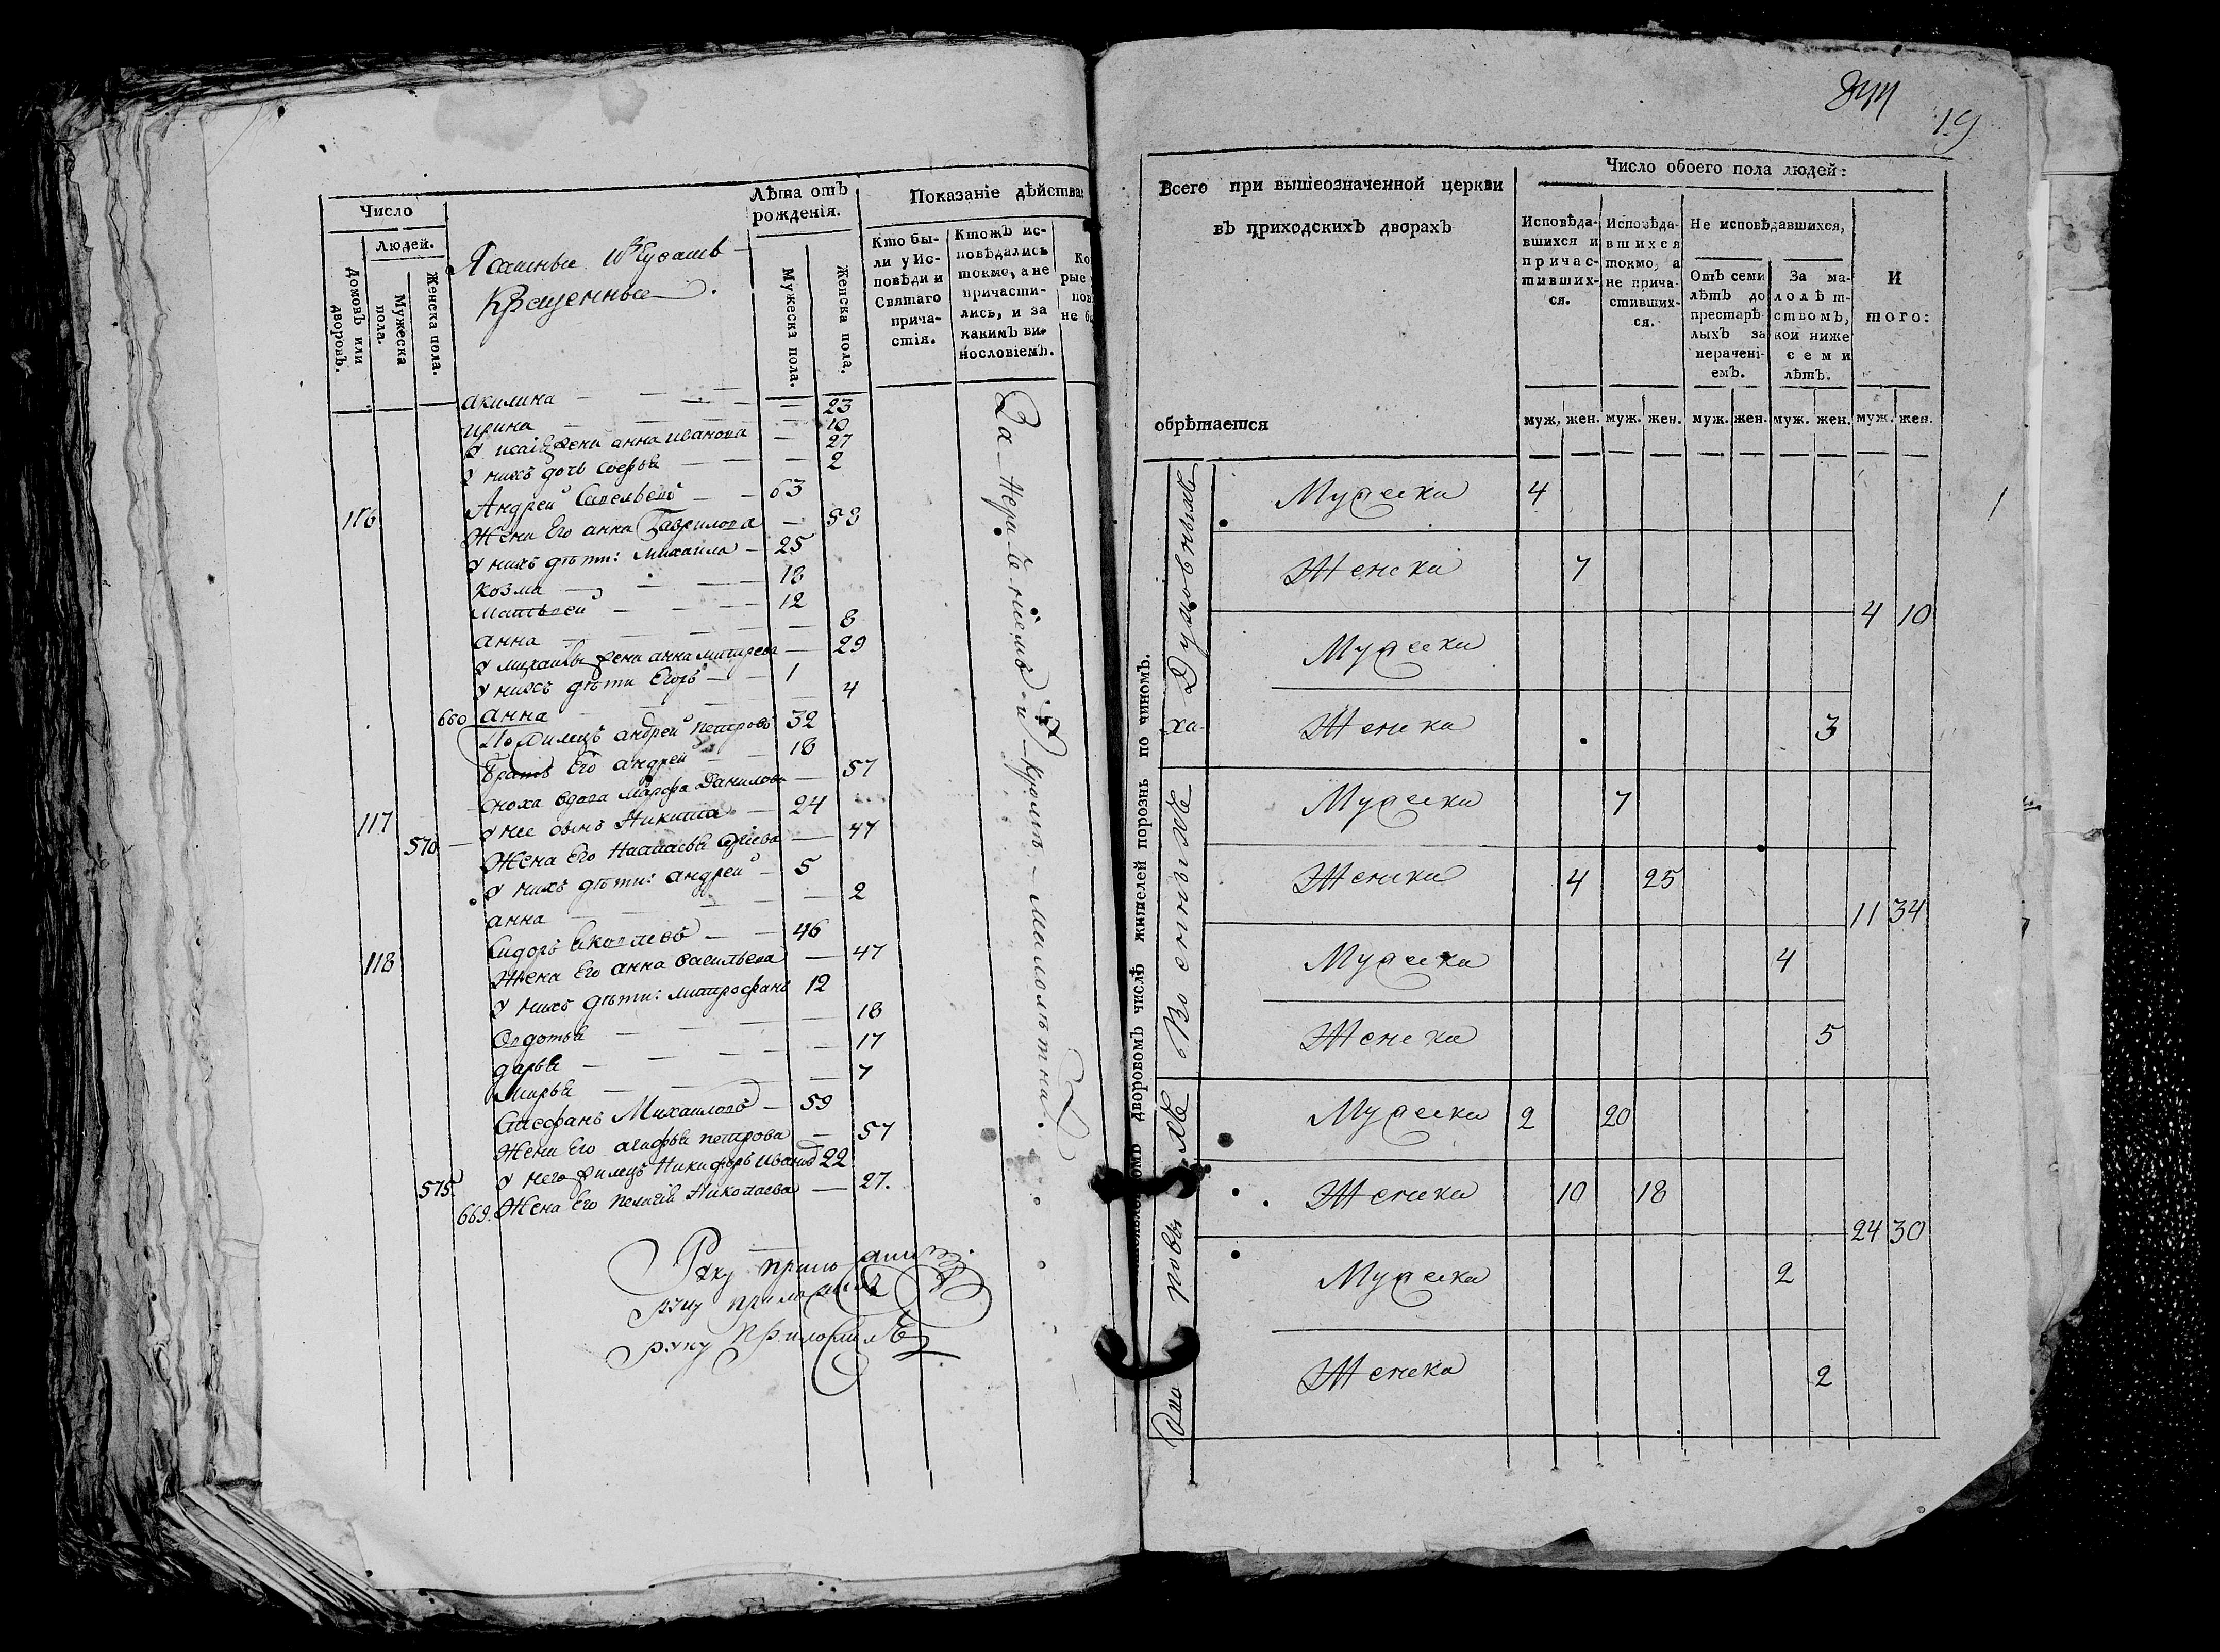 Число
Людей.
Домовъ или дворовъ.
Мужеска пола.
Женска пола.
Ясашные
Крещенные
Лѣта отъ рожденія.
Мужеска пола.
Женска пола.
Показаніе дѣйства
Кто бы-
ли у Ис-
повѣди и
Святаго
прича-
стія.
Ктожъ ис-
повѣдались
токмо, а не
причасти-
лись, и за
какимъ ви-
нословіемъ.
Ко
рые
пов
не б
акилина — — 23
ирина — — 10
У жена анна иванова — 27
У нихъ дочь — 2
116 Андрей — 63
Жена Его анна Гаврилова — 53
У нихъ дѣти: Михаила — 25
Козма — 18
Матвѣей — 12
анна — 8
У михаилы жена анна — 29
У нихъ дѣти Егоръ — 1
660 анна — 4
андрей петровъ 32
братъ Его андрей — 18
сноха вдова Марфа Данилова — 57
117 У нее сынъ Никита — 24
570 Жена Его — 47
У нихъ дѣти: андрей — 5
анна — 2
118 Сидоръ Яковлевъ — 46
Жена Его анна Васильева — 47
У нихъ дѣти: митрофанъ 12
Овдотья — 18
дарья — 17
Марья — 7
Стефанъ Михаиловъ — 59
Жена Его петрова — 57
575. У него Никифоръ Ивановъ 22
669. Жена Его пелагея Николаева — 27.
За нерачениемъ и кромѣ малолѣтных
Руку приложилъ
руку приложилъ
руку приложилъ
19
Всего при вышеозначенной церкви
въ приходскихъ дворахъ
обрѣтается
Число обоего пола людей:
Исповѣда-
вшихся и
причас-
тивших-
ся.
Исповѣда-
вшихся
токмо, а
не прича-
стивших-
ся.
Не исповѣдавшихся,
Отъ семи
лѣтъ до
престарѣ-
лыхъ за
нерачені-
емъ.
За ма-
лолѣт-
ствомъ,
кои ниже
семи
лѣтъ.
И
того:
муж. жен. муж. жен. муж. жен. муж. жен. муж. жен.
дворовомъ числѣ жителей порознь по чиномъ.
Духовныхъ
Мужеска 4
Женска 7
4 10
Мужеска
Женска 3
Военныхъ
Мужеска 7
Женска 4 25
11 34
Мужеска 4
Женска 5
Мужеска 2 20
Женска 10 18
24 30
Мужеска 2
Женска 2